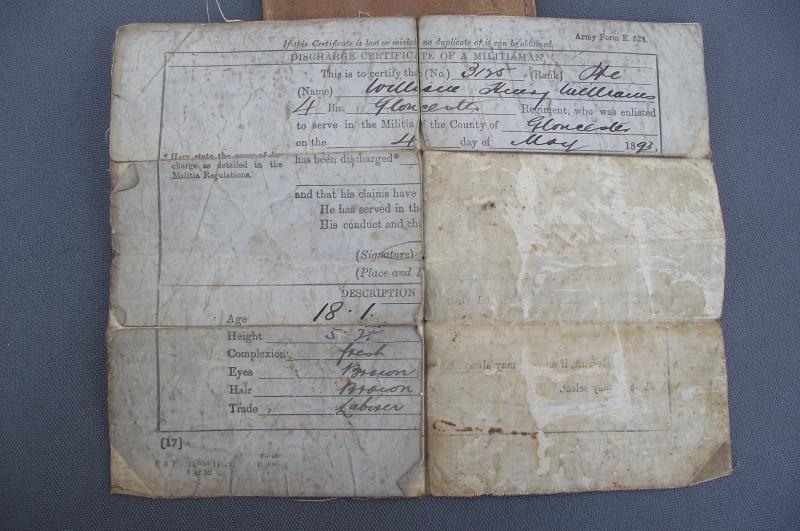 If this Certificate is lost or mislai no duplicate of it can be obtained.
Army Form E. 528.
DISCHARGE CERTIFICATE OF A MILITIAMAN
This is to certify tha (No.) 3125 (Rank) Pte
(Name) William Henry Williams
4 Bn. Gloucester Regiment, who was enlisted
to serve in the Militia f the County of Gloucester
on the 4 day of May 1893,
* Here state the cause of dis-
charge as detailed in the
Militia Regulations.
has been discharged*
and that his claims have
He has served in th
His conduct and ch
(Signature)
(Place and
DESCRIPTION
Age 18.1.
Height 5.2
Complexion fresh
Eyes Brown
Hair Brown
Trade Laborer
[17]